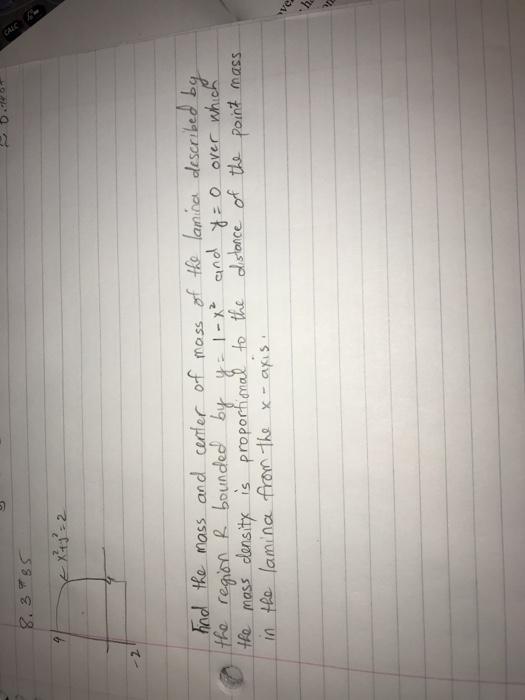 8.3785
x²+y²=2
-2
find the mass and center of mass of the lamina described by
the region R bounded by y = 1-x² and y = 0 over which
the mass density is proportional to the distance of the point mass
in the lamina from the x-axis.
CALC